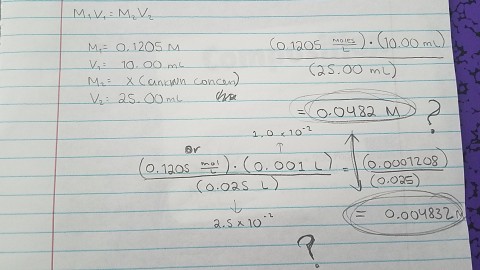 M₁V₁ = M₂V₂
M₁ = 0.1205 M
V₁ = 10.00 mL
M₂ = X (unkwn concen)
V₂ = 25.00mL
(0.1205 moles/L) · (10.00 mL)
(25.00 mL)
= 0.0482 M ?
1.0 x 10⁻²
or
(0.1205 mol/L) · (0.001 L) = (0.0001208)
(0.025 L) (0.025)
2.5 x 10⁻²
= 0.004832 M
?